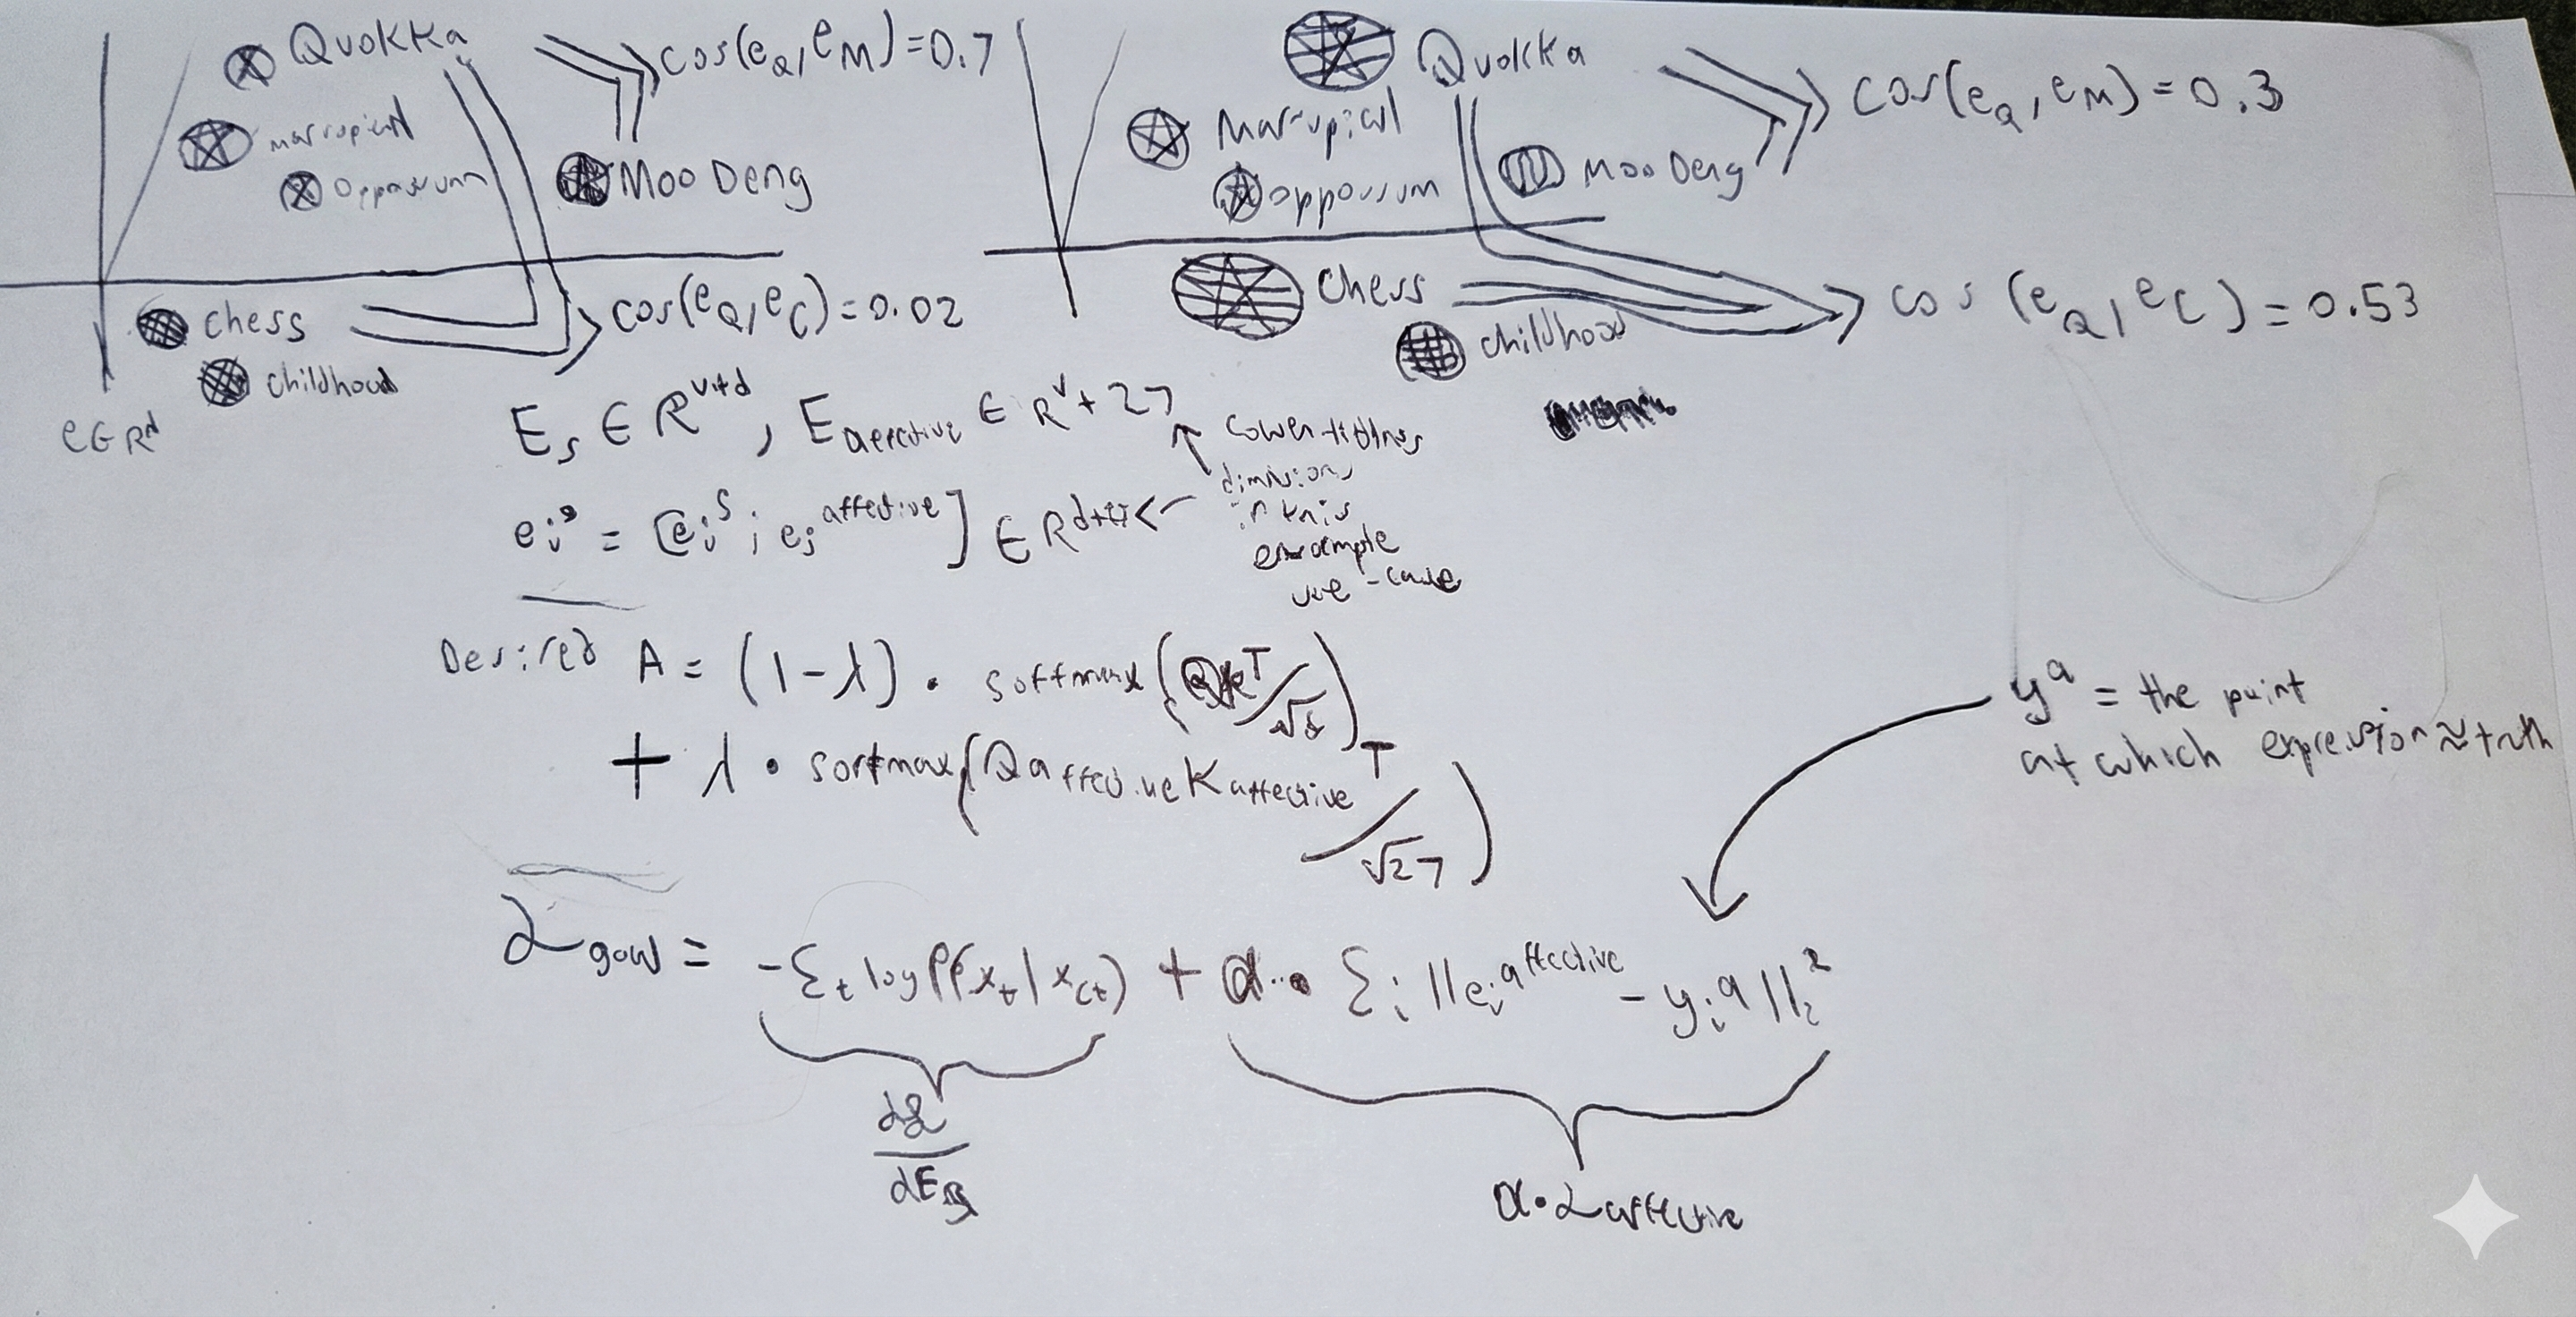 Quokka
cos(e_Q, e_M) = 0.7
marsupial
Oppossum
Moo Deng
chess
cos(e_Q, e_C) = 0.02
childhood
e ∈ R^d
Quokka
cos(e_Q, e_M) = 0.3
Marsupial
Moo Deng
oppossum
chess
cos(e_Q, e_C) = 0.53
childhood
E_s ∈ R^{v+d}, E_affective ∈ R^{v+27}
dimisions
in this
example
use-case
e_i = [e_i^s ; e_i^affective] ∈ R
Desired A = (1-λ) · softmax(QK^T/√d)
+ λ · softmax(Q_affective K_affective^T/√27)
y^a = the point
at which expression ≈ truth
L_goal = -Σ_t log P(x_t|x_<t) + α · Σ_i ||e_i^affective - y_i^a||_2^2
dL
dE_s
α·L_affective